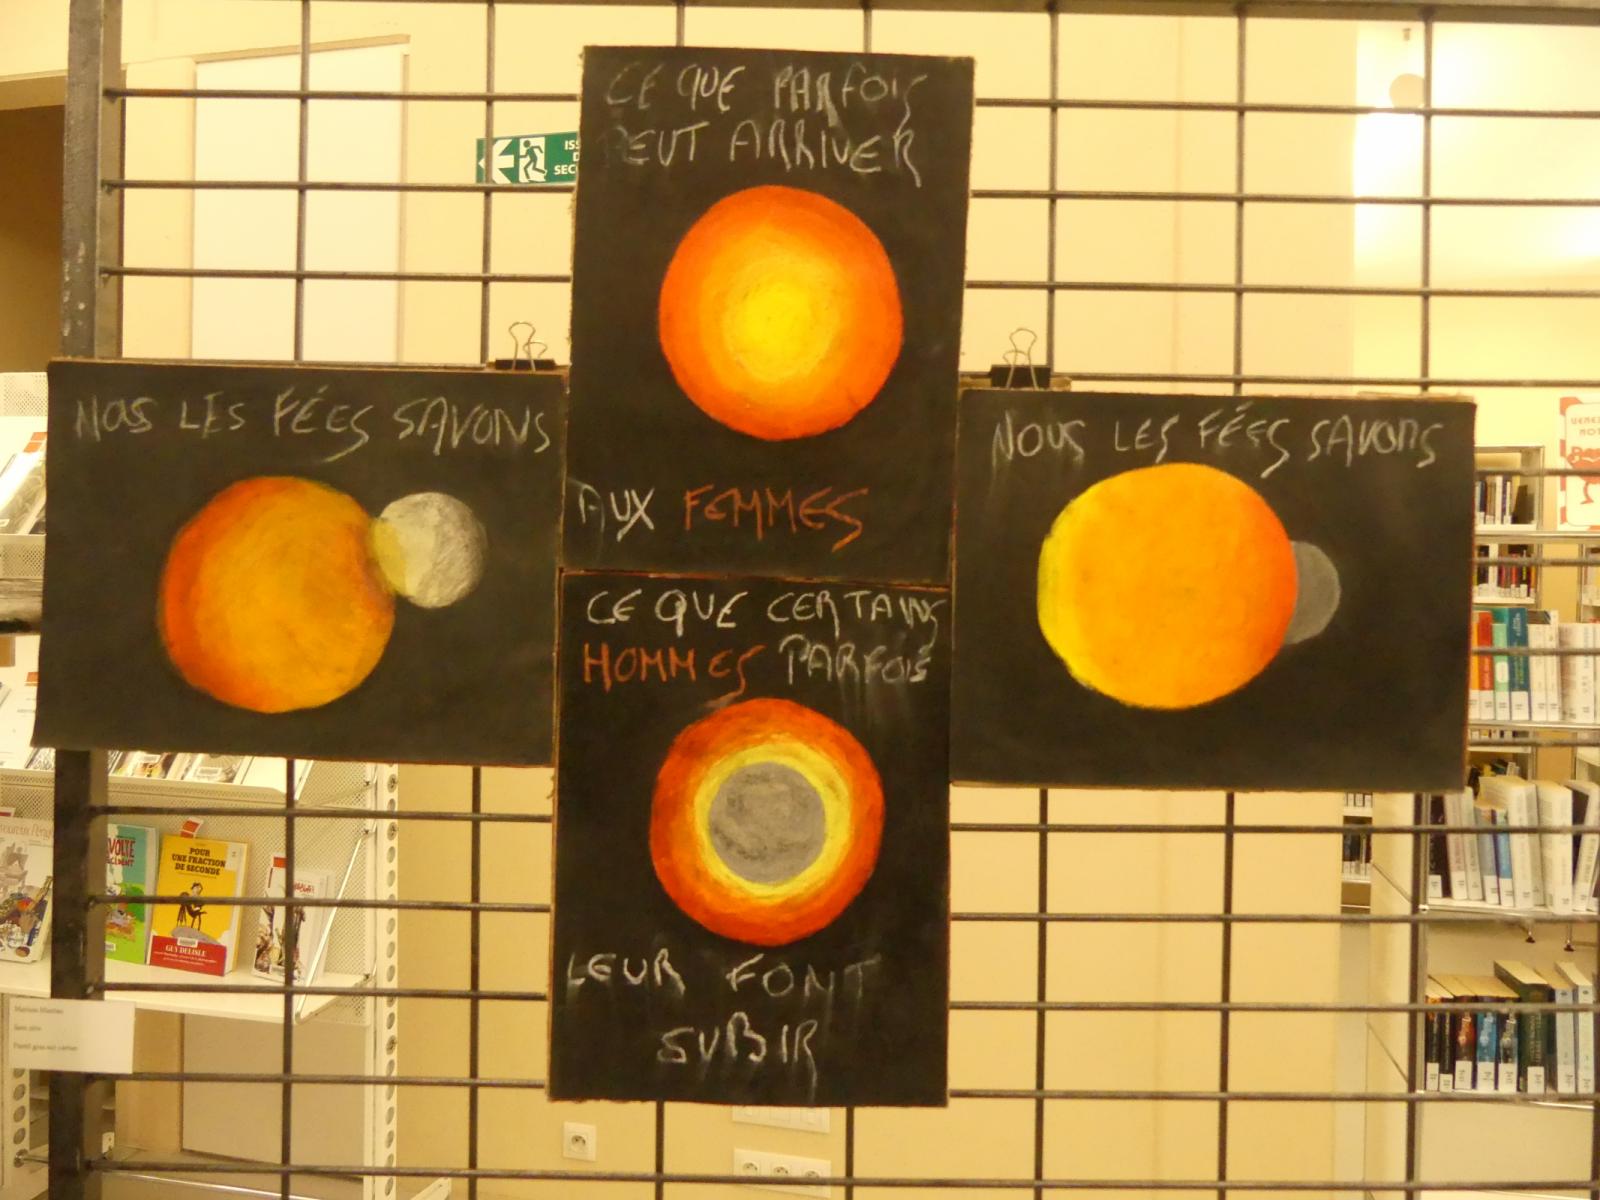 CE QUE PARFOIS
PEUT ARRIVER
AUX FEMMES
NOUS LES FÉES SAVONS
NOUS LES FÉES SAVONS
CE QUE CERTAINS
HOMMES PARFOIS
LEUR FONT
SUBIR
ISS
D
SEC
POUR
UNE FRACTION
DE SECONDE
GUY DELISLE
VOLTE
Sans titre